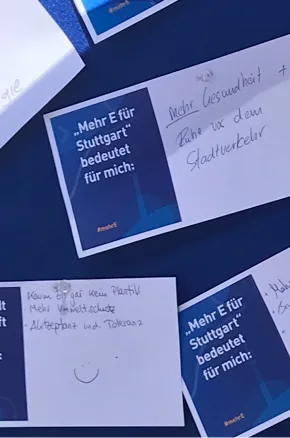 #mehrE
„Mehr E für
Stuttgart"
bedeutet
für mich:
#mehrE
mehr Gesundheit +
Ruhe vor dem
Stadtverkehr
Kaum bis gar kein Plastik
- Mehr Umweltschutz
- Akzeptanz und Toleranz
„Mehr E für
Stuttgart"
bedeutet
für mich:
#mehrE